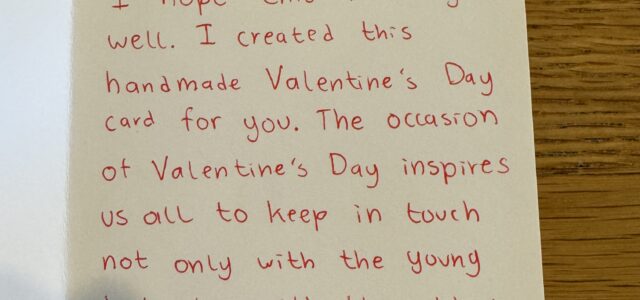 I hope
well. I created this
handmade Valentine's Day
card for you. The occasion
of Valentine's Day inspires
us all to keep in touch
not only with the young